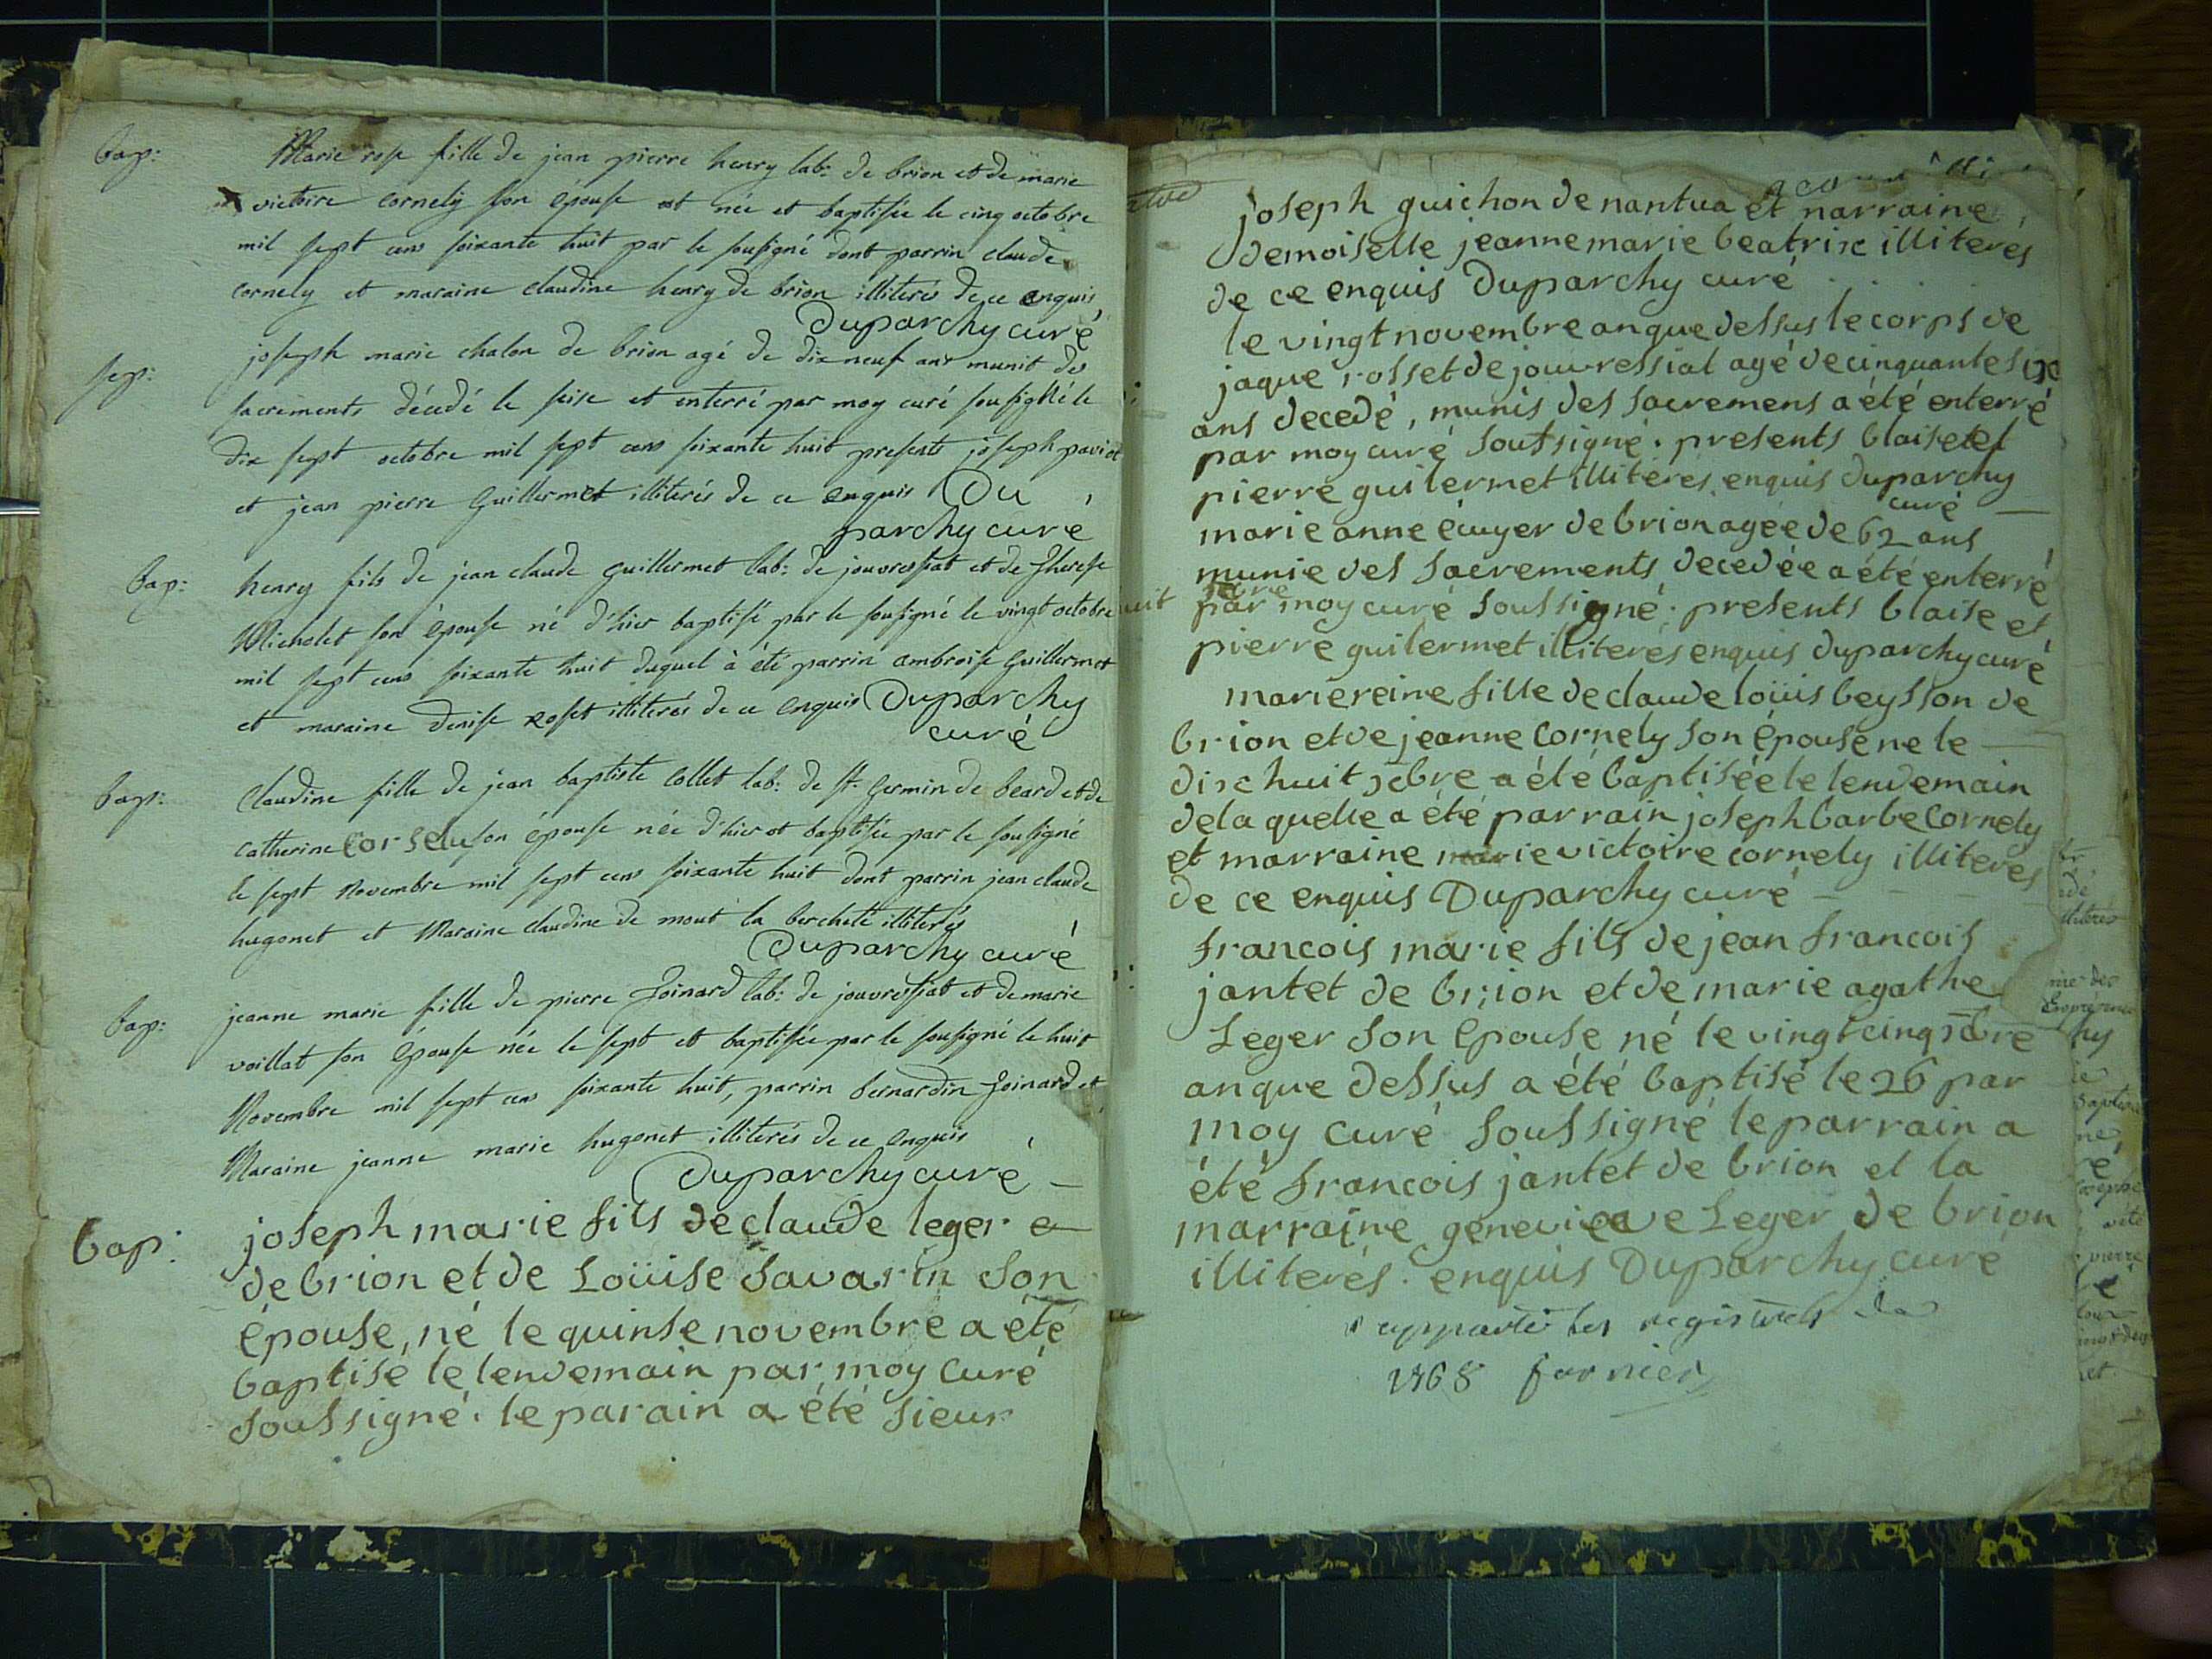 bap: Marie rose fille de jean pierre henry lab: de brion et de marie
victoire cornely son épouse est née et baptisée le cinq octobre
mil sept cens soixante huit par le sousigné dont parrin claude
cornely et maraine claudine henry de brion illiterés de ce enquis
Duparchy curé
sep: joseph marie chalon de brion agé de dix neuf ans munit des
sacrements décédé le seise et enterré par moy curé sousigné le
dix sept octobre mil sept cens soixante huit presents joseph paviot
et jean pierre Guillermet illiterés de ce enquis Du
parchy curé
bap: henry fils de jean claude guillermet lab: de jouvressiat et de therese
Micholet son épouse né d'hier baptisé par le sousigné le vingt octobre
mil sept cens soixante huit duquel à été parrin ambroise Guillermet
et maraine denise roset illiterés de ce enquis Duparchy
curé
bap: Claudine fille de jean baptiste Collet lab: de st. Germin de beard et de
catherine Corselu son épouse née d'hier et baptisée par le sousigné
le sept Novembre mil sept cens soixante huit dont parrin jean claude
hugonet et Maraine claudine de mont la berchete illiterés
Duparchy curé
bap: jeanne marie fille de pierre Goinard lab: de jouvressiat et de marie
voillat son épouse née le sept et baptisée par le sousigné le huit
Novembre mil sept cens soixante huit, parrin bernardin Goinard et
Maraine jeanne marie hugonet illiterés de ce enquis
Duparchy curé
bap: joseph marie fils de claude leger
de brion et de Loüise Savarin son
épouse, né le quinse novembre a été
baptisé le lendemain par moy curé
soussigné. le parain a été sieur
joseph guichon de nantua et narraine
demoiselle jeanne marie beatrix illiterés
de ce enquis Duparchy curé
le vingt novembre an que dessus le corps de
jaque rosset de jouvressiat agé de cinquante six
ans decedé, munis des sacremens a été enterré
par moy curé soussigné. presents blaise et
pierre guilermet illiterés enquis Duparchy
curé
marie anne écuyer de brion agée de 62 ans
munie des sacrements decedée a été enterré
par moy curé soussigné. presents blaise et
pierre guilermet illiterés enquis Duparchy curé
marie reine fille de claude loüis beysson de
brion et de jeanne Cornely son épouse ne le
dix huit xbre a été baptisée le lendemain
de la quelle a été parrain joseph barbe Cornely
et marraine marie victoire cornely illiteres
de ce enquis Duparchy curé
francois marie fils de jean francois
jantet de brion et de marie agathe
Leger son epouse né le vingt cinq xbre
an que dessus a été baptisé le 26 par
moy curé soussigné le parrain a
été francois jantet de brion et la
marraine genevieve Leger de brion
illiterés. enquis Duparchy curé
apporté les registres de
1768 fornier